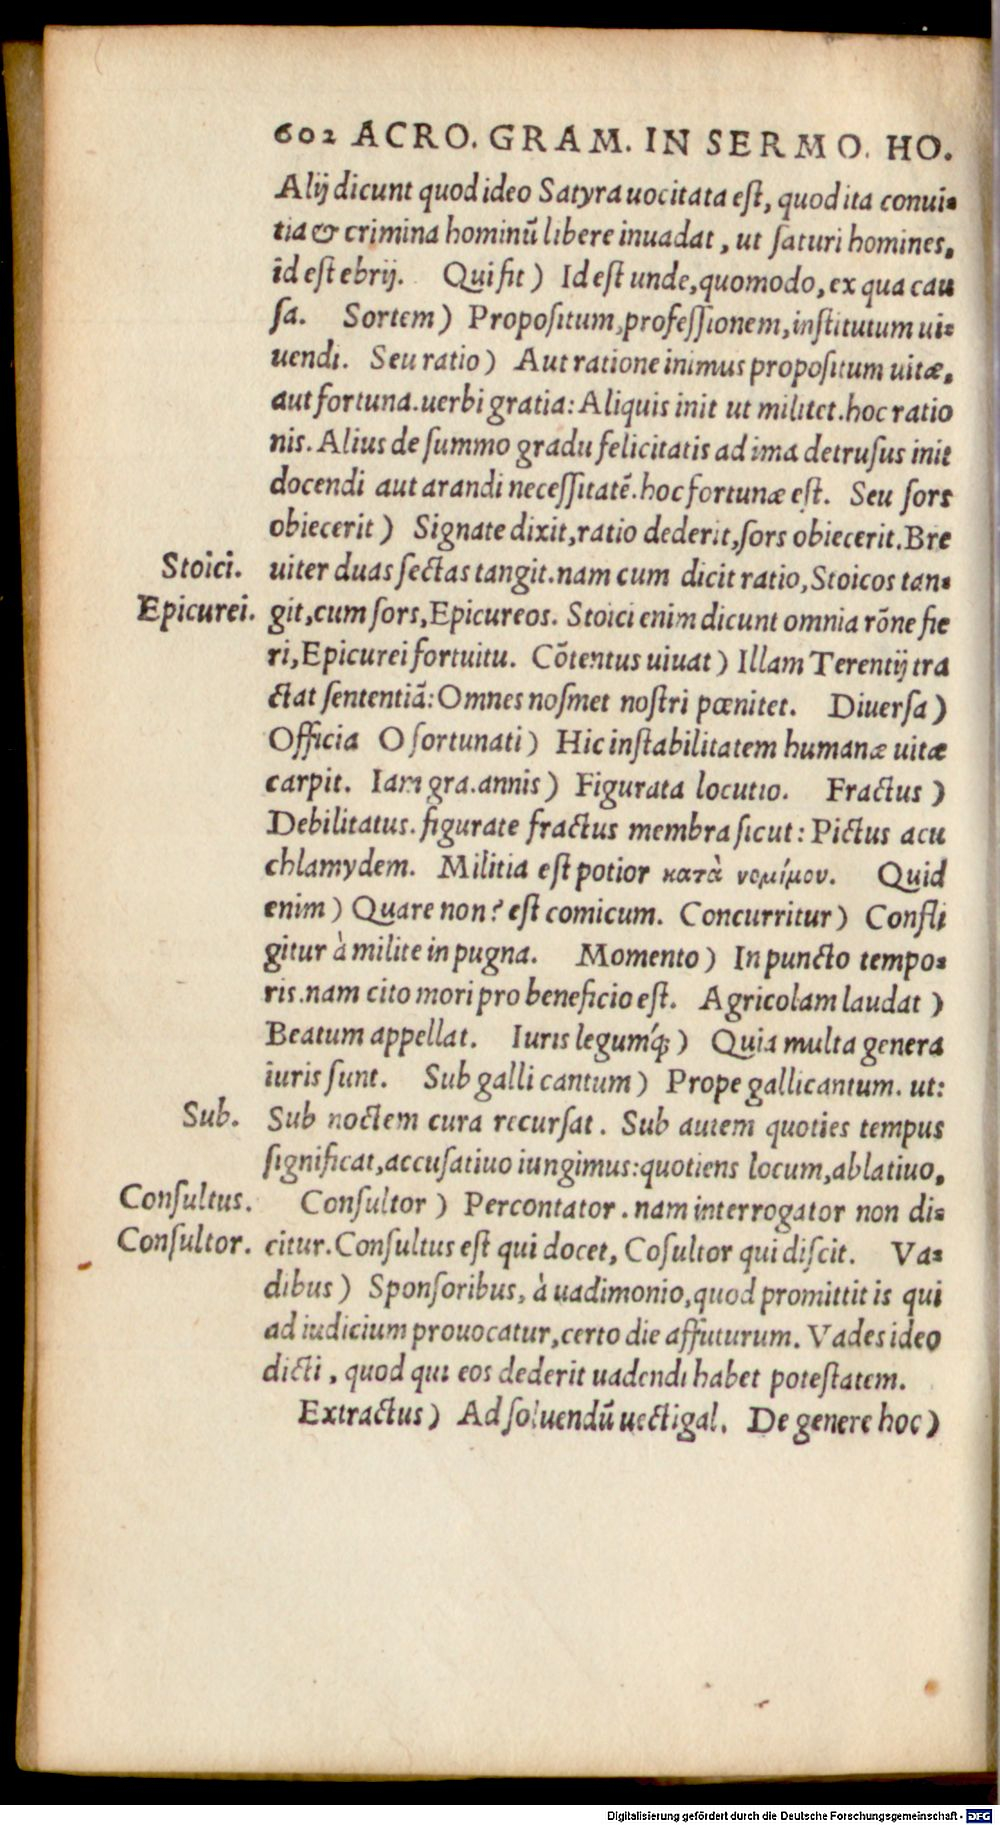 602 ACRO. GRAM. IN SERMO. HO.
Alij dicunt quod ideo Satyra uocitata eſt, quod ita conui-
tia & crimina hominū libere inuadat, ut ſaturi homines,
id eſt ebrij. Qui fit) Id eſt unde, quomodo, ex qua cau
ſa. Sortem) Propoſitum, profeſſionem, inſtitutum ui-
uendi. Seu ratio) Aut ratione inimus propoſitum uitæ,
aut fortuna. uerbi gratia: Aliquis init ut militet. hoc ratio
nis. Alius de ſummo gradu felicitatis ad ima detruſus init
docendi aut arandi neceſſitatē. hoc fortunæ eſt. Seu ſors
obiecerit) Signate dixit, ratio dederit, ſors obiecerit. Bre
Stoici. uiter duas ſectas tangit. nam cum dicit ratio, Stoicos tan-
Epicurei. git, cum ſors, Epicureos. Stoici enim dicunt omnia rōne fie
ri, Epicurei fortuitu. Cōtentus uiuat) Illam Terentij tra
ctat ſententiā: Omnes noſmet noſtri pœnitet. Diuerſa)
Officia O fortunati) Hic inſtabilitatem humanæ uitæ
carpit. Iam gra. annis) Figurata locutio. Fractus)
Debilitatus. figurate fractus membra ſicut: Pictus acu
chlamydem. Militia eſt potior κατὰ νομίμου. Quid
enim) Quare non? eſt comicum. Concurritur) Confli
gitur à milite in pugna. Momento) In puncto tempo-
ris. nam cito mori pro beneficio eſt. Agricolam laudat)
Beatum appellat. Iuris legumq́;) Quia multa genera
iuris ſunt. Sub galli cantum) Prope gallicantum. ut:
Sub. Sub noctem cura recurſat. Sub autem quoties tempus
ſignificat, accuſatiuo iungimus: quotiens locum, ablatiuo,
Conſultus. Conſultor) Percontator. nam interrogator non di-
Conſultor. citur. Conſultus eſt qui docet, Coſultor qui diſcit. Va-
dibus) Sponſoribus, à uadimonio, quod promittit is qui
ad iudicium prouocatur, certo die affuturum. Vades ideo
dicti, quod qui eos dederit uadendi habet poteſtatem.
Extractus) Ad ſoluendū uectigal. De genere hoc)
Digitalisierung gefördert durch die Deutsche Forschungsgemeinschaft - DFG